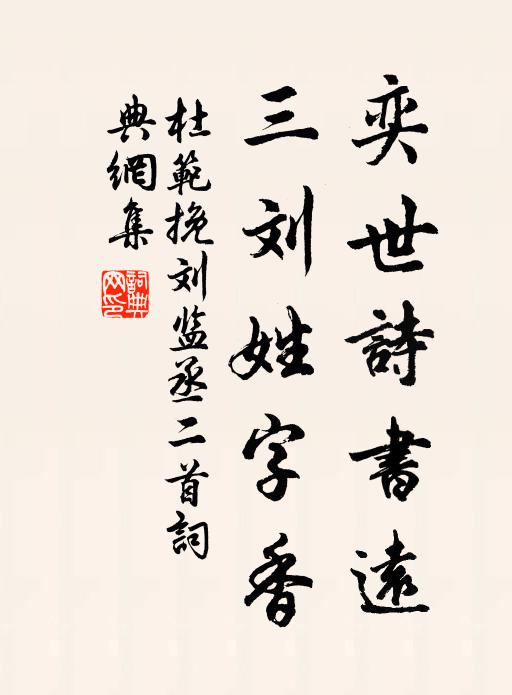 奕世詩書遠
三刘姓字香
杜範挽刘监丞二首詞
典網集
詞典網印